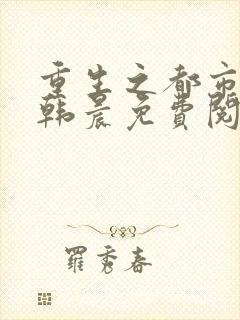 重生之都市
韩晨免费阅
羅秀春